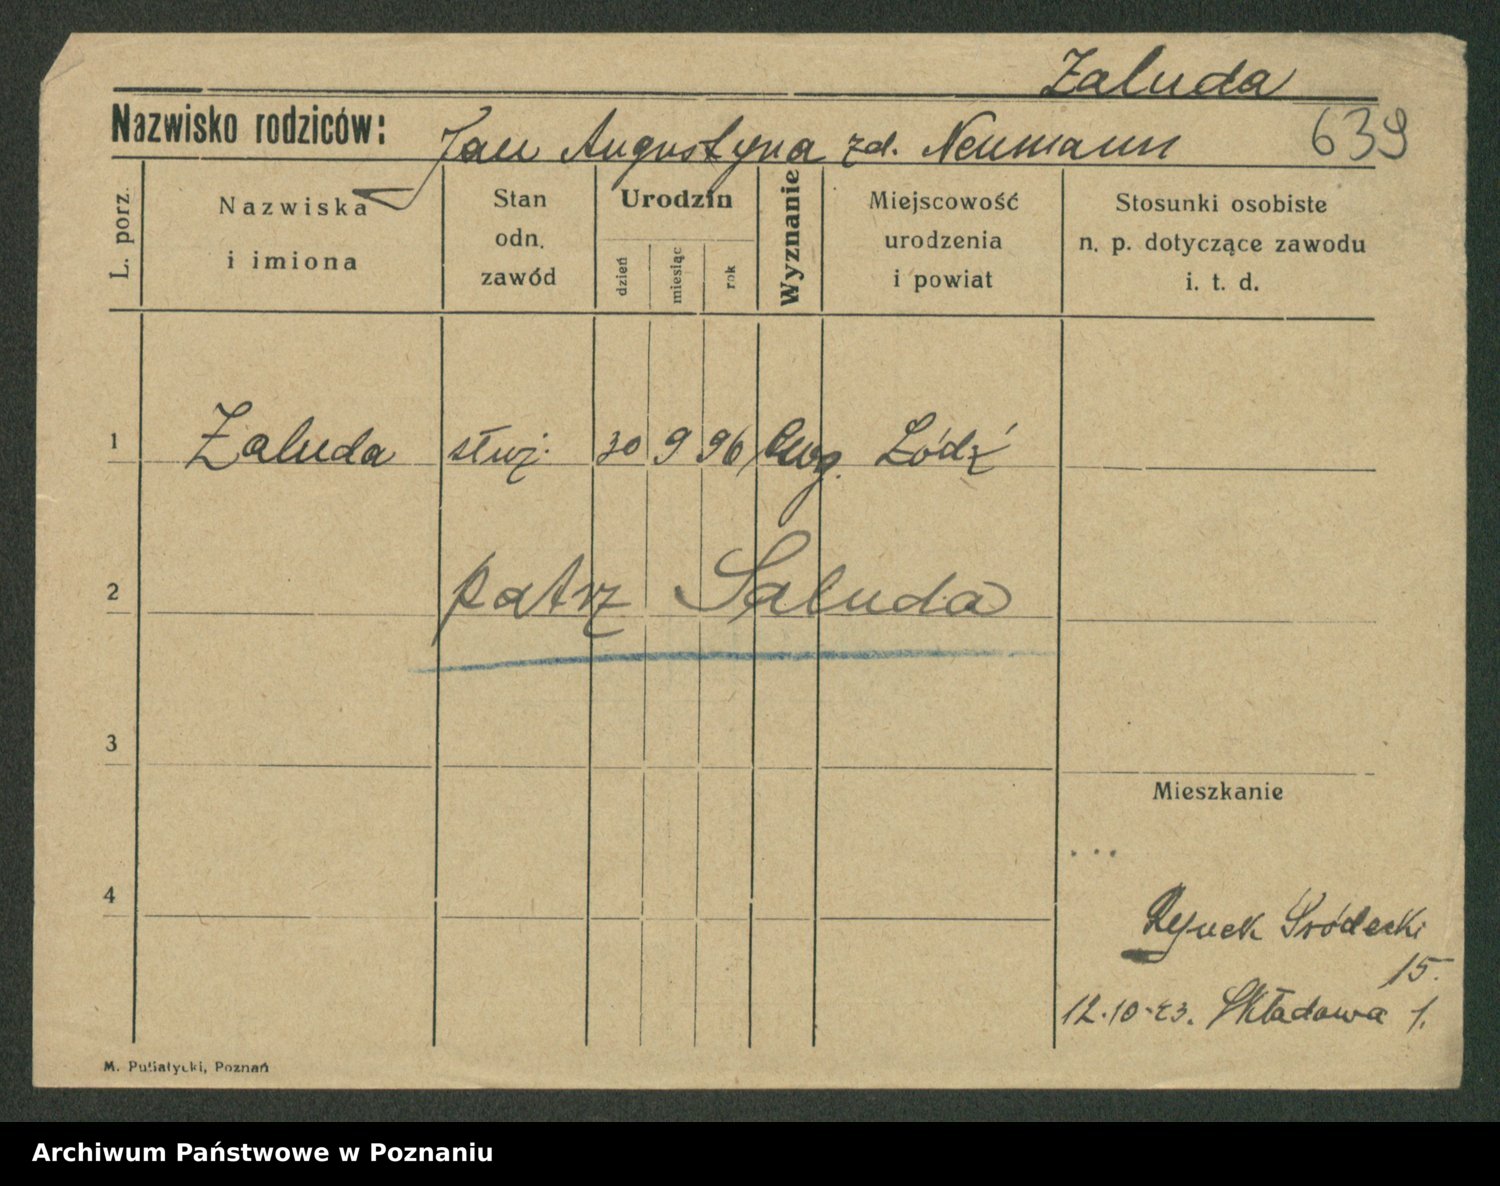 Zaluda
Nazwisko rodziców: Jan Augustyna zd. Neumann 639
L. porz.
Nazwiska
i imiona
Stan
odn.
zawód
Urodzin
dzień
miesiąc
rok
Wyznanie
Miejscowość
urodzenia
i powiat
Stosunki osobiste
n. p. dotyczące zawodu
i. t. d.
1 Zaluda służ. 30 9 96 Ewg. Łódź
2 patrz Saluda
3
Mieszkanie
4
Rynek Śródecki
15.
12.10.23. Składowa 1.
M. Putiatycki, Poznań
Archiwum Państwowe w Poznaniu